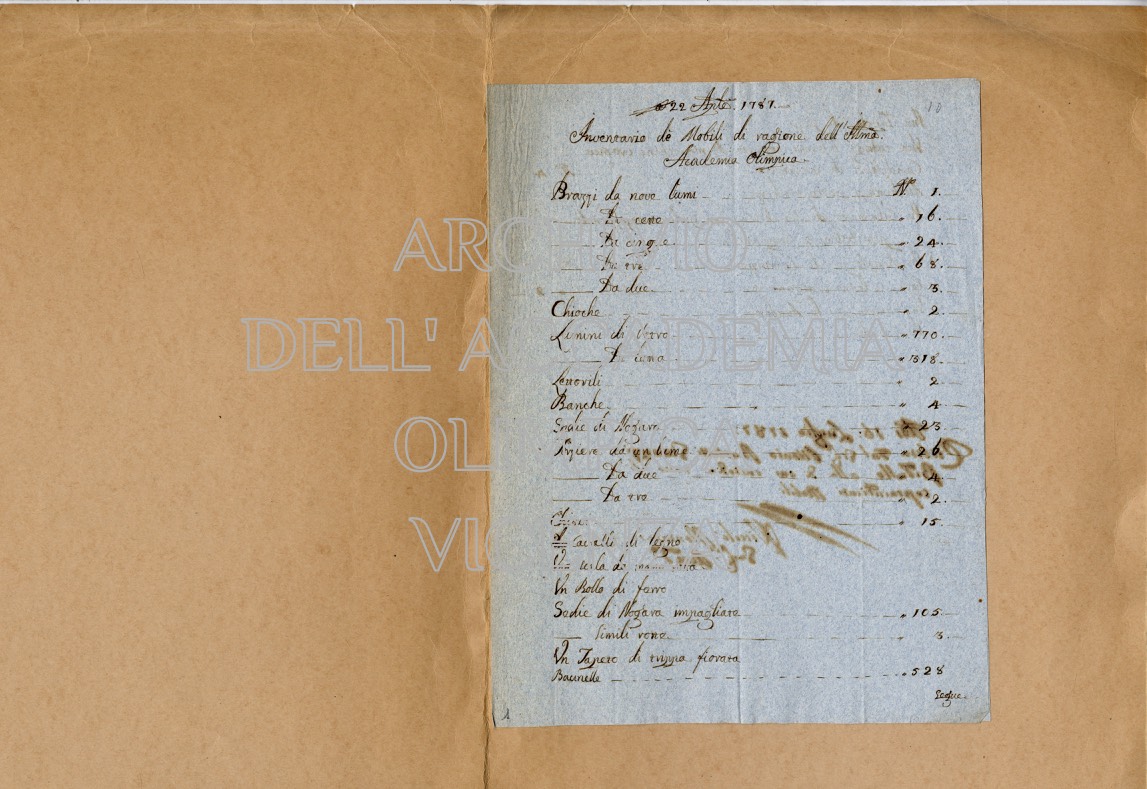 22 Aple 1787.
10
Inventario de Mobili di ragione dell'Illma
Academia Olimpica
Brazzi da nove lumi N° 1.
Da cette " 16.
Da cinque " 24.
Da tre " 68.
Da due " 3.
Chioche " 2.
Lumini di Vetro " 770.
Da " 1318.
" 2.
Banche " 4.
di Nogara " 23
da un lume " 26.
Da due " 4.
Da tre " 2.
" 15.
Cavalli di legno
Un Rollo di ferro
Sedie di Nogara impagliate " 105.
Simili rotte " 3.
Un Tapeto di trippa fiorata
" 528
Segue
ARCHIVIO
DELL'ACCADEMIA
OLIMPICA
VICENZA